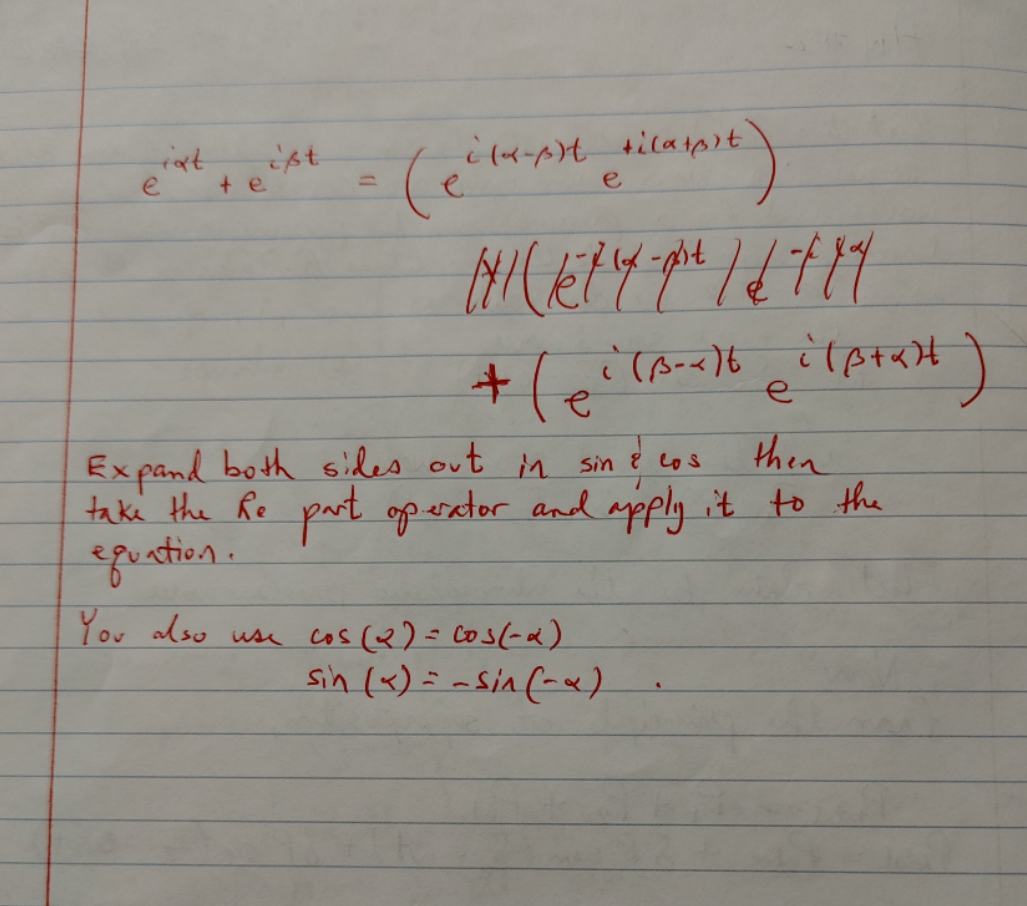 e^{iαt} + e^{iβt} = ( e^{i(α-β)t} e^{+i(α+β)t} )
+ ( e^{i(β-α)t} e^{i(β+α)t} )
Expand both sides out in sin & cos then
take the Re part operator and apply it to the
equation.
You also use cos(α) = cos(-α)
sin(α) = -sin(-α) .